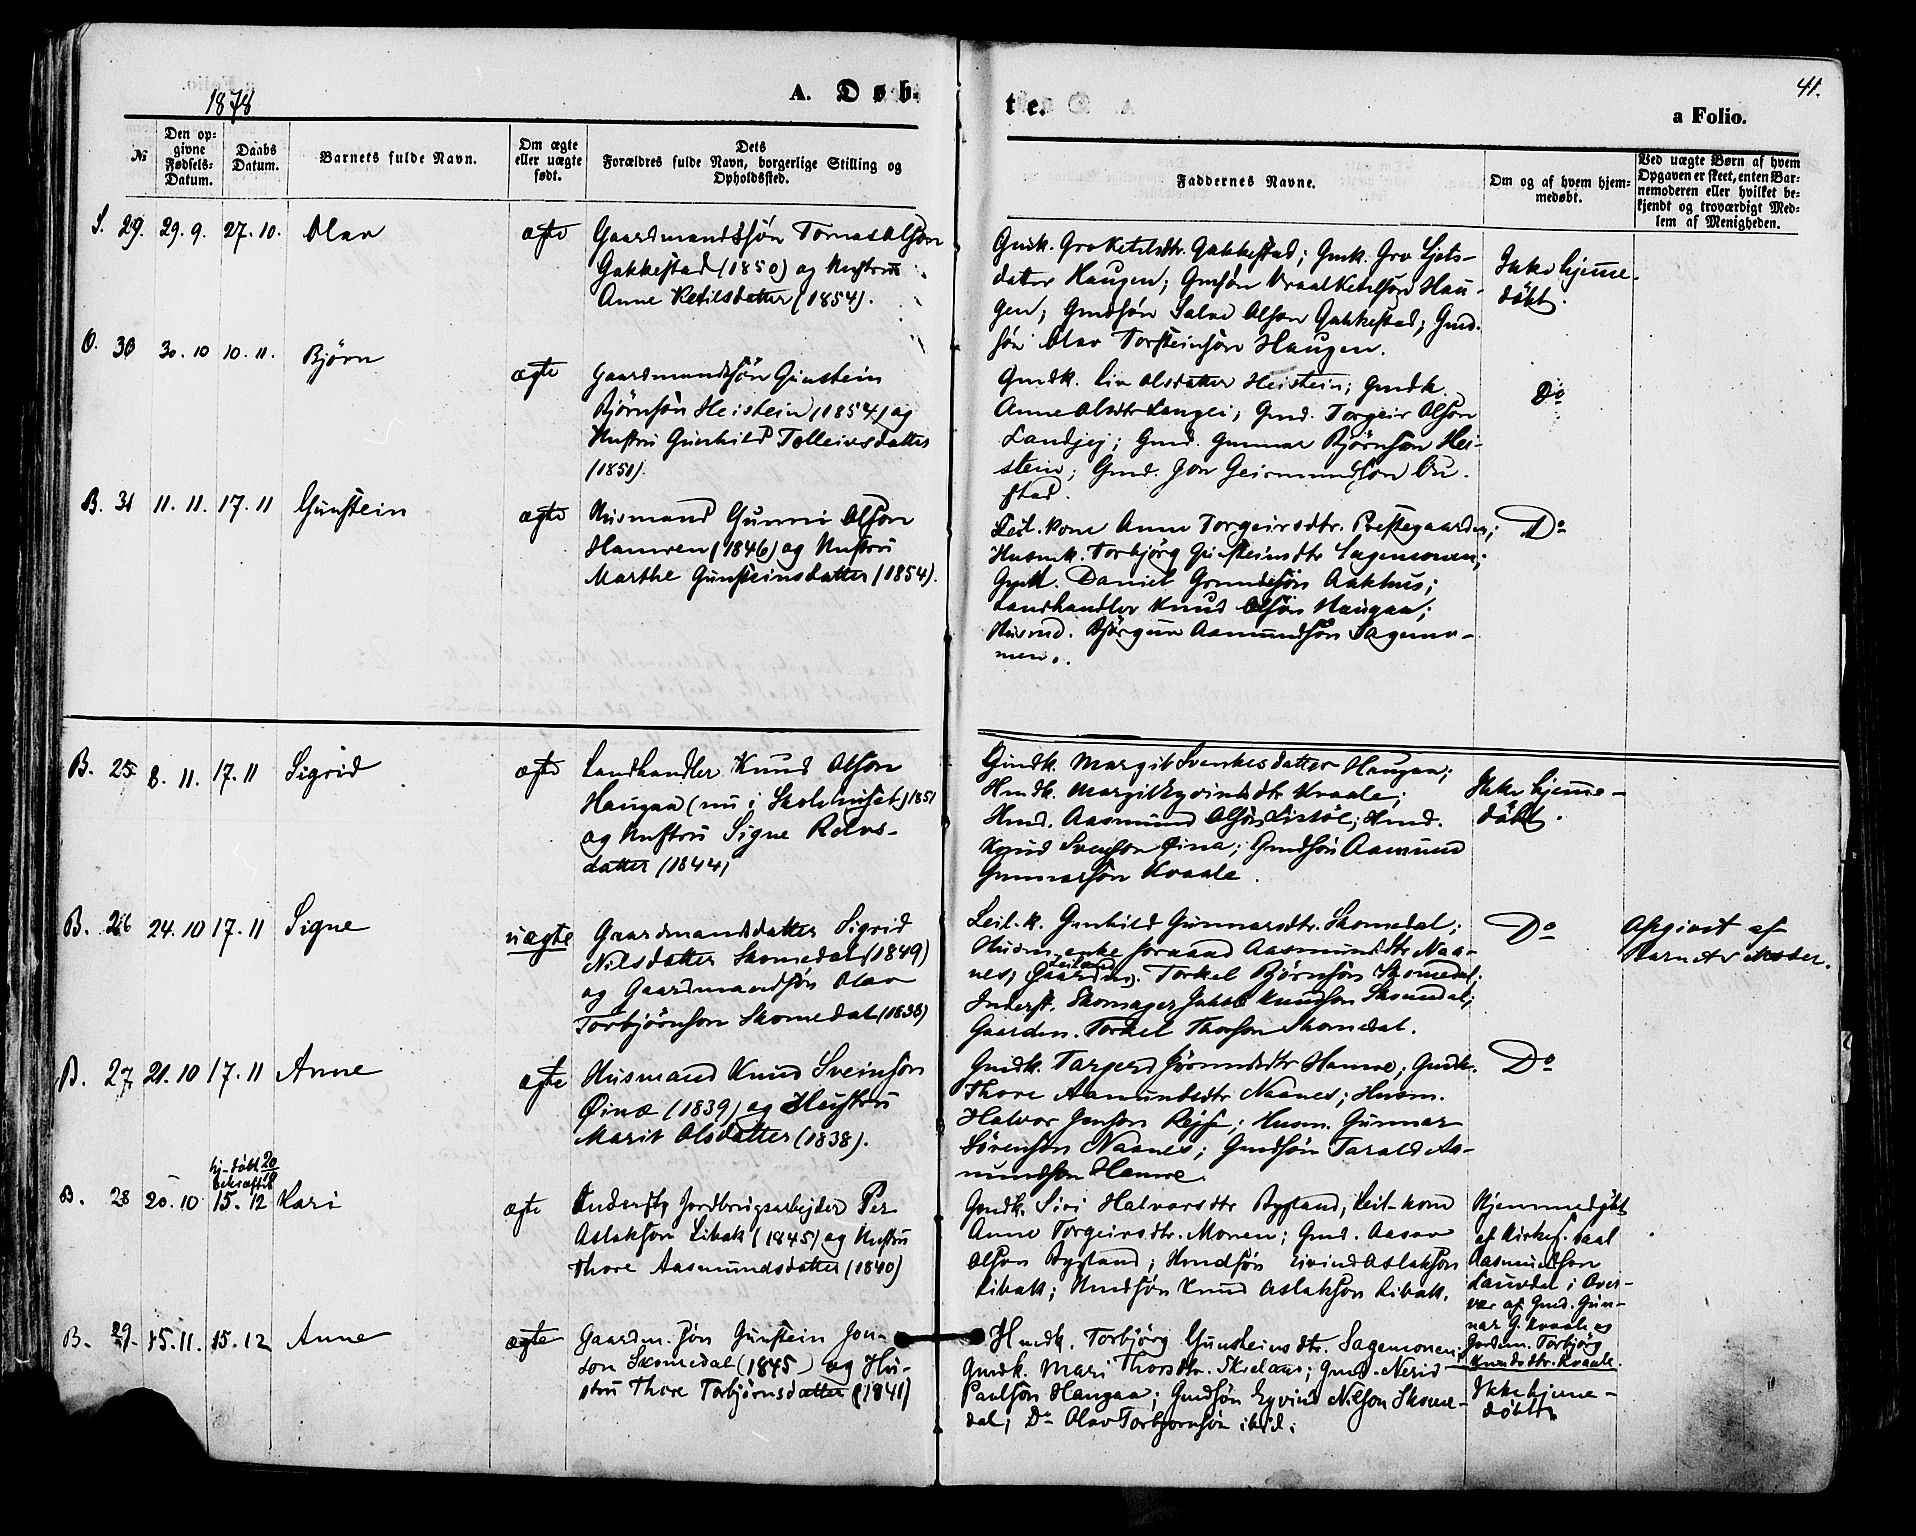 1878
A. Døb-
te.
41.
a Folio.
№
Den op-
givne
Fødsels-
Datum.
Daabs
Datum.
Barnets fulde Navn.
Om ægte
eller uægte
født.
Dets
Forældres fulde Navn, borgerlige Stilling og
Opholdssted.
Faddernes Navne.
Om og af hvem hjem-
medøbt.
Ved uægte Børn af hvem
Opgaven er skeet, enten Bar-
nemoderen eller hvilket be-
kjendt og troværdigt Med-
lem af Menigheden.
S. 29. 29. 9. 27. 10. Olav ægte
Gaardmandssøn Tomas Olson
Gakkestad (1850) og Hustru
Anne Ketilsdatter (1854).
Gmk. Gro Ketilsdtr. Gakkestad; Gmk. Gro Ljots-
datter Haugen; Gmsøn Vraal Ketilson Hau-
gen; Gmdsøn Salve Olson Gakkestad; Gmd.
søn Olav Torsteinsøn Haugen.
Ikke hjemme-
døbt.
O. 30 30. 10 10. 11. Bjørn ægte
Gaardmandssøn Gunstein
Bjørnsøn Heistein (1854) og
Hustru Gunhild Tolleivsdatter
(1851).
Gmdk. Liv Olsdatter Heistein; Gmdk.
Anne Olsdtr Langei; Gmd. Torgeir Olson
Landjej; Gmd. Gunnar Bjørnson Hei-
stein; Gmd. Jon Geirmundson
stad.
Do
B. 31 11. 11. 17. 11 Gunstein ægte
Husmand Gunni Olson
Hamren (1846) og Hustru
Marthe Gunsteinsdatter (1854).
Leil. kone Anne Torgeirsdtr. Prestegaarden;
Husmk. Torbjørg Gunsteinsdtr Sagemonen;
Daniel Grundesøn Aakhus;
Landhandler Knud Olsøn Haugaa;
Husmd. Bjørgun Aamundsøn Sagemo-
nen.
Do
B. 25 8. 11. 17. 11 Sigrid ægte
Landhandler Knud Olson
Haugaa (nu i Skolehuset) 1851
og Hustru Signe Rolvs-
datter (1844)
Gmdk. Margit Svenkesdatter Haugaa;
Hmdk. Margit Eyvindsdtr Kvaale;
Hmd. Aasmund Olsøn Listøl; Hmd.
Knud Svenson Øina; Gmdsøn Aamund
Gunnarsøn Kvaale.
Ikke hjemme-
døbt.
B. 26 24. 10 17. 11 Signe uægte
Gaardmandsdatter Sigrid
Nilsdatter Skomedal (1849)
og Gaardmandsøn Olav
Torbjørnson Skomedal (1838)
Leil. k. Gunhild Gunnarsdtr. Skomedal;
Husm. enke Joraand Aasmundsdtr Naa-
nes; Torkel Bjørnsøn Skomedal;
Inderst. Skomager Jakob Knudson Skomedal;
Gaardm. Torkel Thorson Skomedal.
Do
Opgivet af
Barnets Moder.
B. 27 21. 10 17. 11 Anne ægte
Husmand Knud Sveinsøn
Øinæ (1839) og Hustru
Marit Olsdatter (1838).
Gmdk. Targerd Hamre; Gmdk.
Thore Aamundsdtr Naanes; Husm.
Halvor Jenson; Husm. Gunnar
Sørensøn Naanes; Gmdsøn Tarald Aa-
mundsøn Hamre.
Do
hj. døbt 20/10
bekræftet
B. 28 20. 10 15. 12 Kari ægte
Inderst, Jordbrugsarbejder Per
Aslakson Libak (1845) og Hustru
Thore Aasmundsdatter (1840)
Gmdk. Siri Halvorsdtr Bygland; Leil-kone
Anne Torgeirsdtr. Monen; Gmd. Aasar
Olson Bygland; Hmdsøn Eivind Aslakson
Libakk; Hmdsøn Knud Aslakson Libakk.
Hjemmedøbt
af Kirkes. Taal
Aasmundson
Lauvdal i Over-
vær af Gmd. Gun-
nar G. Kvaale og
Jordem. Torbjørg
Knudsdtr. Kvaale.
B. 29. 15. 11. 15. 12 Anne ægte
Gaardm. søn Gunstein Jon-
son Skomedal (1845) og Hu-
stru Thore Torbjørnsdatter (1841)
Hmdk. Torbjørg Gunsteinsdtr. Sagemonen;
Gmdk. Mari Thorsdtr. ; Gmd. Nerid
Paulsøn Haugaa; Gmdsøn Eyvind Nilson Skome-
dal; Do Olav Torbjørnsøn ibid.
Ikke hjemme-
døbt.